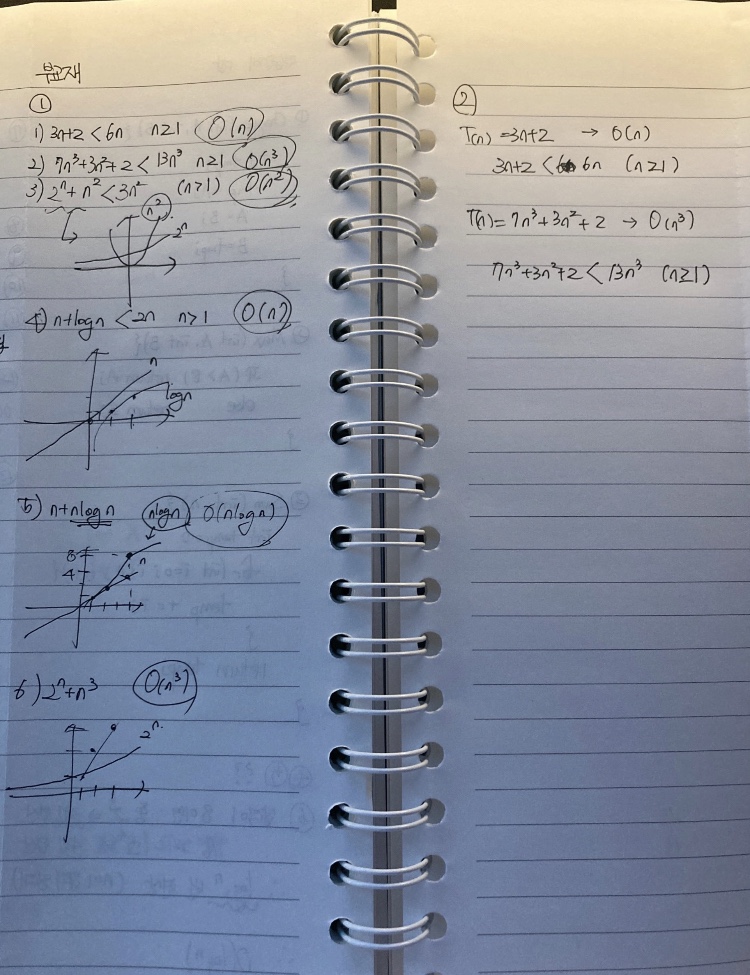 부교재
①
1) 3n+2 < 6n n≥1 O(n)
2) 7n³+3n²+2 < 13n³ n≥1 O(n³)
3) 2ⁿ+n² < 3n² (n>1) O(n²)
n²
2ⁿ
4) n+logn < 2n n>1 O(n)
n
logn
5) n+nlogn nlogn O(nlogn)
8
4
n
6) 2ⁿ+n³ O(n³)
2ⁿ
②
T(n) = 3n+2 → O(n)
3n+2 < 6n (n≥1)
T(n) = 7n³+3n²+2 → O(n³)
7n³+3n²+2 < 13n³ (n≥1)